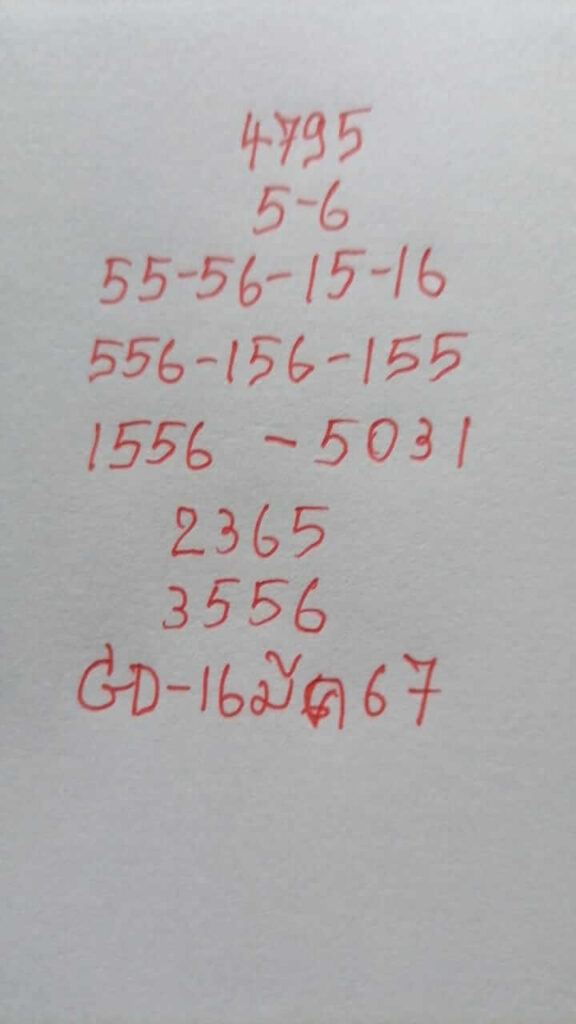 4795
5-6
55-56-15-16
556-156-155
1556 - 5031
2365
3556
GD-16มีค67